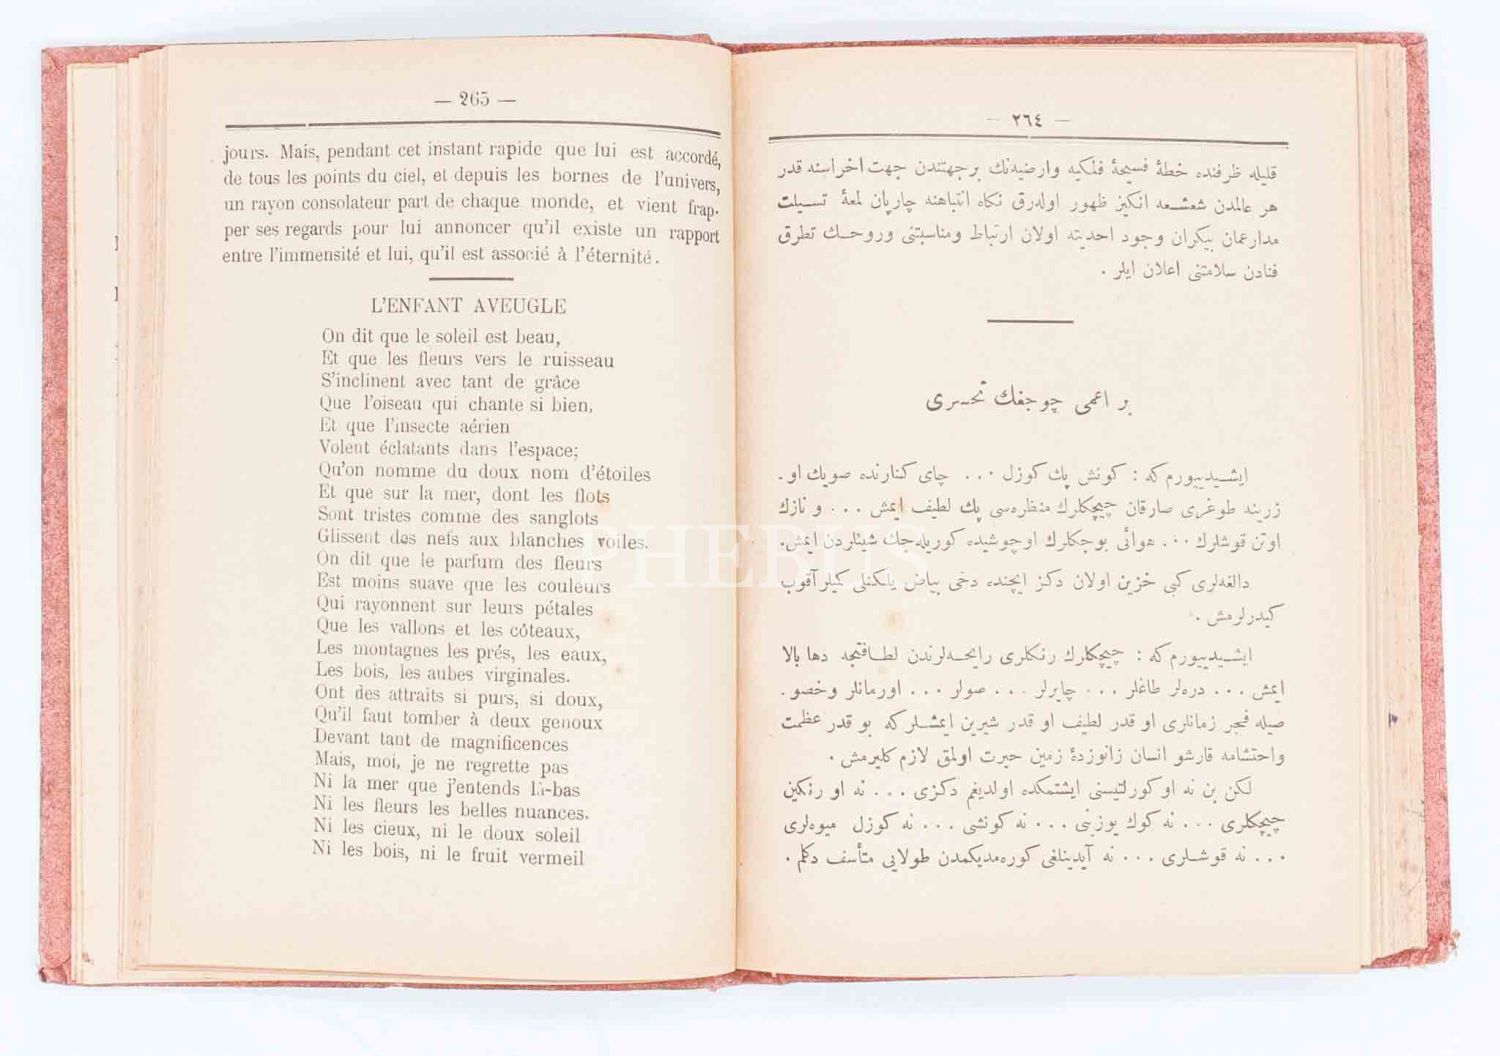 — 265 —
jours. Mais, pendant cet instant rapide que lui est accordé,
de tous les points du ciel, et depuis les bornes de l'univers,
un rayon consolateur part de chaque monde, et vient frap-
per ses regards pour lui annoncer qu'il existe un rapport
entre l'immensité et lui, qu'il est associé à l'éternité.
L'ENFANT AVEUGLE
On dit que le soleil est beau,
Et que les fleurs vers le ruisseau
S'inclinent avec tant de grâce
Que l'oiseau qui chante si bien,
Et que l'insecte aérien
Volent éclatants dans l'espace;
Qu'on nomme du doux nom d'étoiles
Et que sur la mer, dont les flots
Sont tristes comme des sanglots
Glissent des nefs aux blanches voiles.
On dit que le parfum des fleurs
Est moins suave que les couleurs
Qui rayonnent sur leurs pétales
Que les vallons et les côteaux,
Les montagnes les prés, les eaux,
Les bois, les aubes virginales.
Ont des attraits si purs, si doux,
Qu'il faut tomber à deux genoux
Devant tant de magnificences
Mais, moi, je ne regrette pas
Ni la mer que j'entends là-bas
Ni les fleurs les belles nuances.
Ni les cieux, ni le doux soleil
Ni les bois, ni le fruit vermeil
— ٢٦٤ —
قليله ظرفنده خطهٔ فسيحهٔ فلكيه وارضيه‌نك برجهتندن جهت اخراسنه قدر
هر عالمدن شعشعه انكيز ظهور اوله‌رق نكاه انتباهنه چارپان لمعهٔ تسيلت
مدارعمان بيكران وجود احديته اولان ارتباط ومناسبتنى وروحك تطرق
فنادن سلامتنى اعلان ايلر .
بر اعمى چوجغك تحسرى
ايشيدييورم كه : كونش پك كوزل ... چاى كنارنده صويك او-
زرينه طوغرى صارقان چيچكلرك منظره‌سى پك لطيف ايمش ... و نازك
اوتن قوشلرك ... هوائى بوجكلرك اوچوشيده كوريله‌جك شيئلردن ايمش.
دالغه‌لرى كبى حزين اولان دكز ايچنده دخى بياض يلكنلى كيلر آقوب
كيدرلرمش .
ايشيدييورم كه : چيچكلرك رنكلرى رايحه‌لرندن لطافتجه دها بالا
ايمش ... دره‌لر طاغلر ... چايرلر ... صولر ... اورمانلر وخصو-
صيله فجر زمانلرى او قدر لطيف او قدر شيرين ايمشلركه بو قدر عظمت
واحتشامه قارشو انسان زانوزدهٔ زمين حيرت اولمق لازم كليرمش .
لكن بن نه اوكورلتيسنى ايشتمكده اولديغم دكزى ... نه او رنكين
چيچكلرى ... نه كوك يوزينى ... نه كونشى ... نه كوزل ميوه‌لرى
... نه قوشلرى ... نه آيدينلغى كوره‌مديكمدن طولايى متأسف دكلم .
PHEBUS